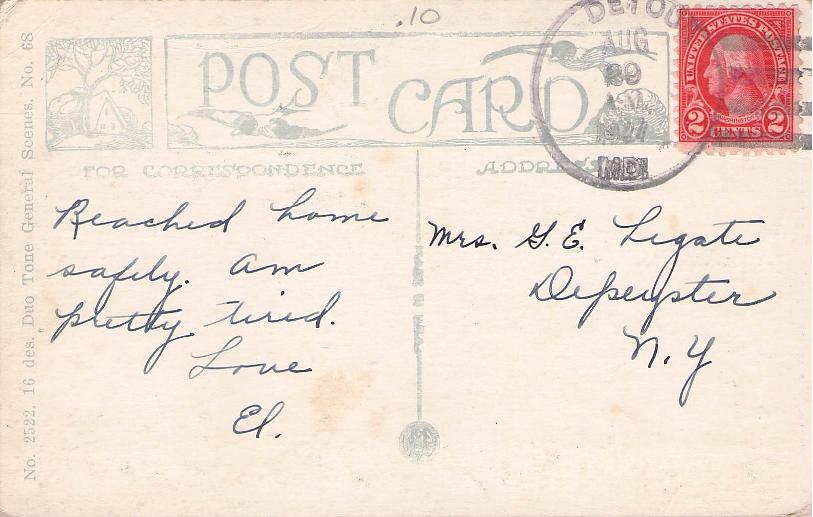 .10
POST CARD
FOR CORRESPONDENCE
ADDRESS
DETOUR
AUG
29
A.M.
1927
UNITED STATES POSTAGE
WASHINGTON
2 CENTS 2
Reached home
safely. am
pretty tired.
Love
El.
Mrs. G. E. Legate
Depeyster
N. Y
MADE IN U.S.A.
No. 2522, 16 des. Duo Tone General Scenes. No. 68